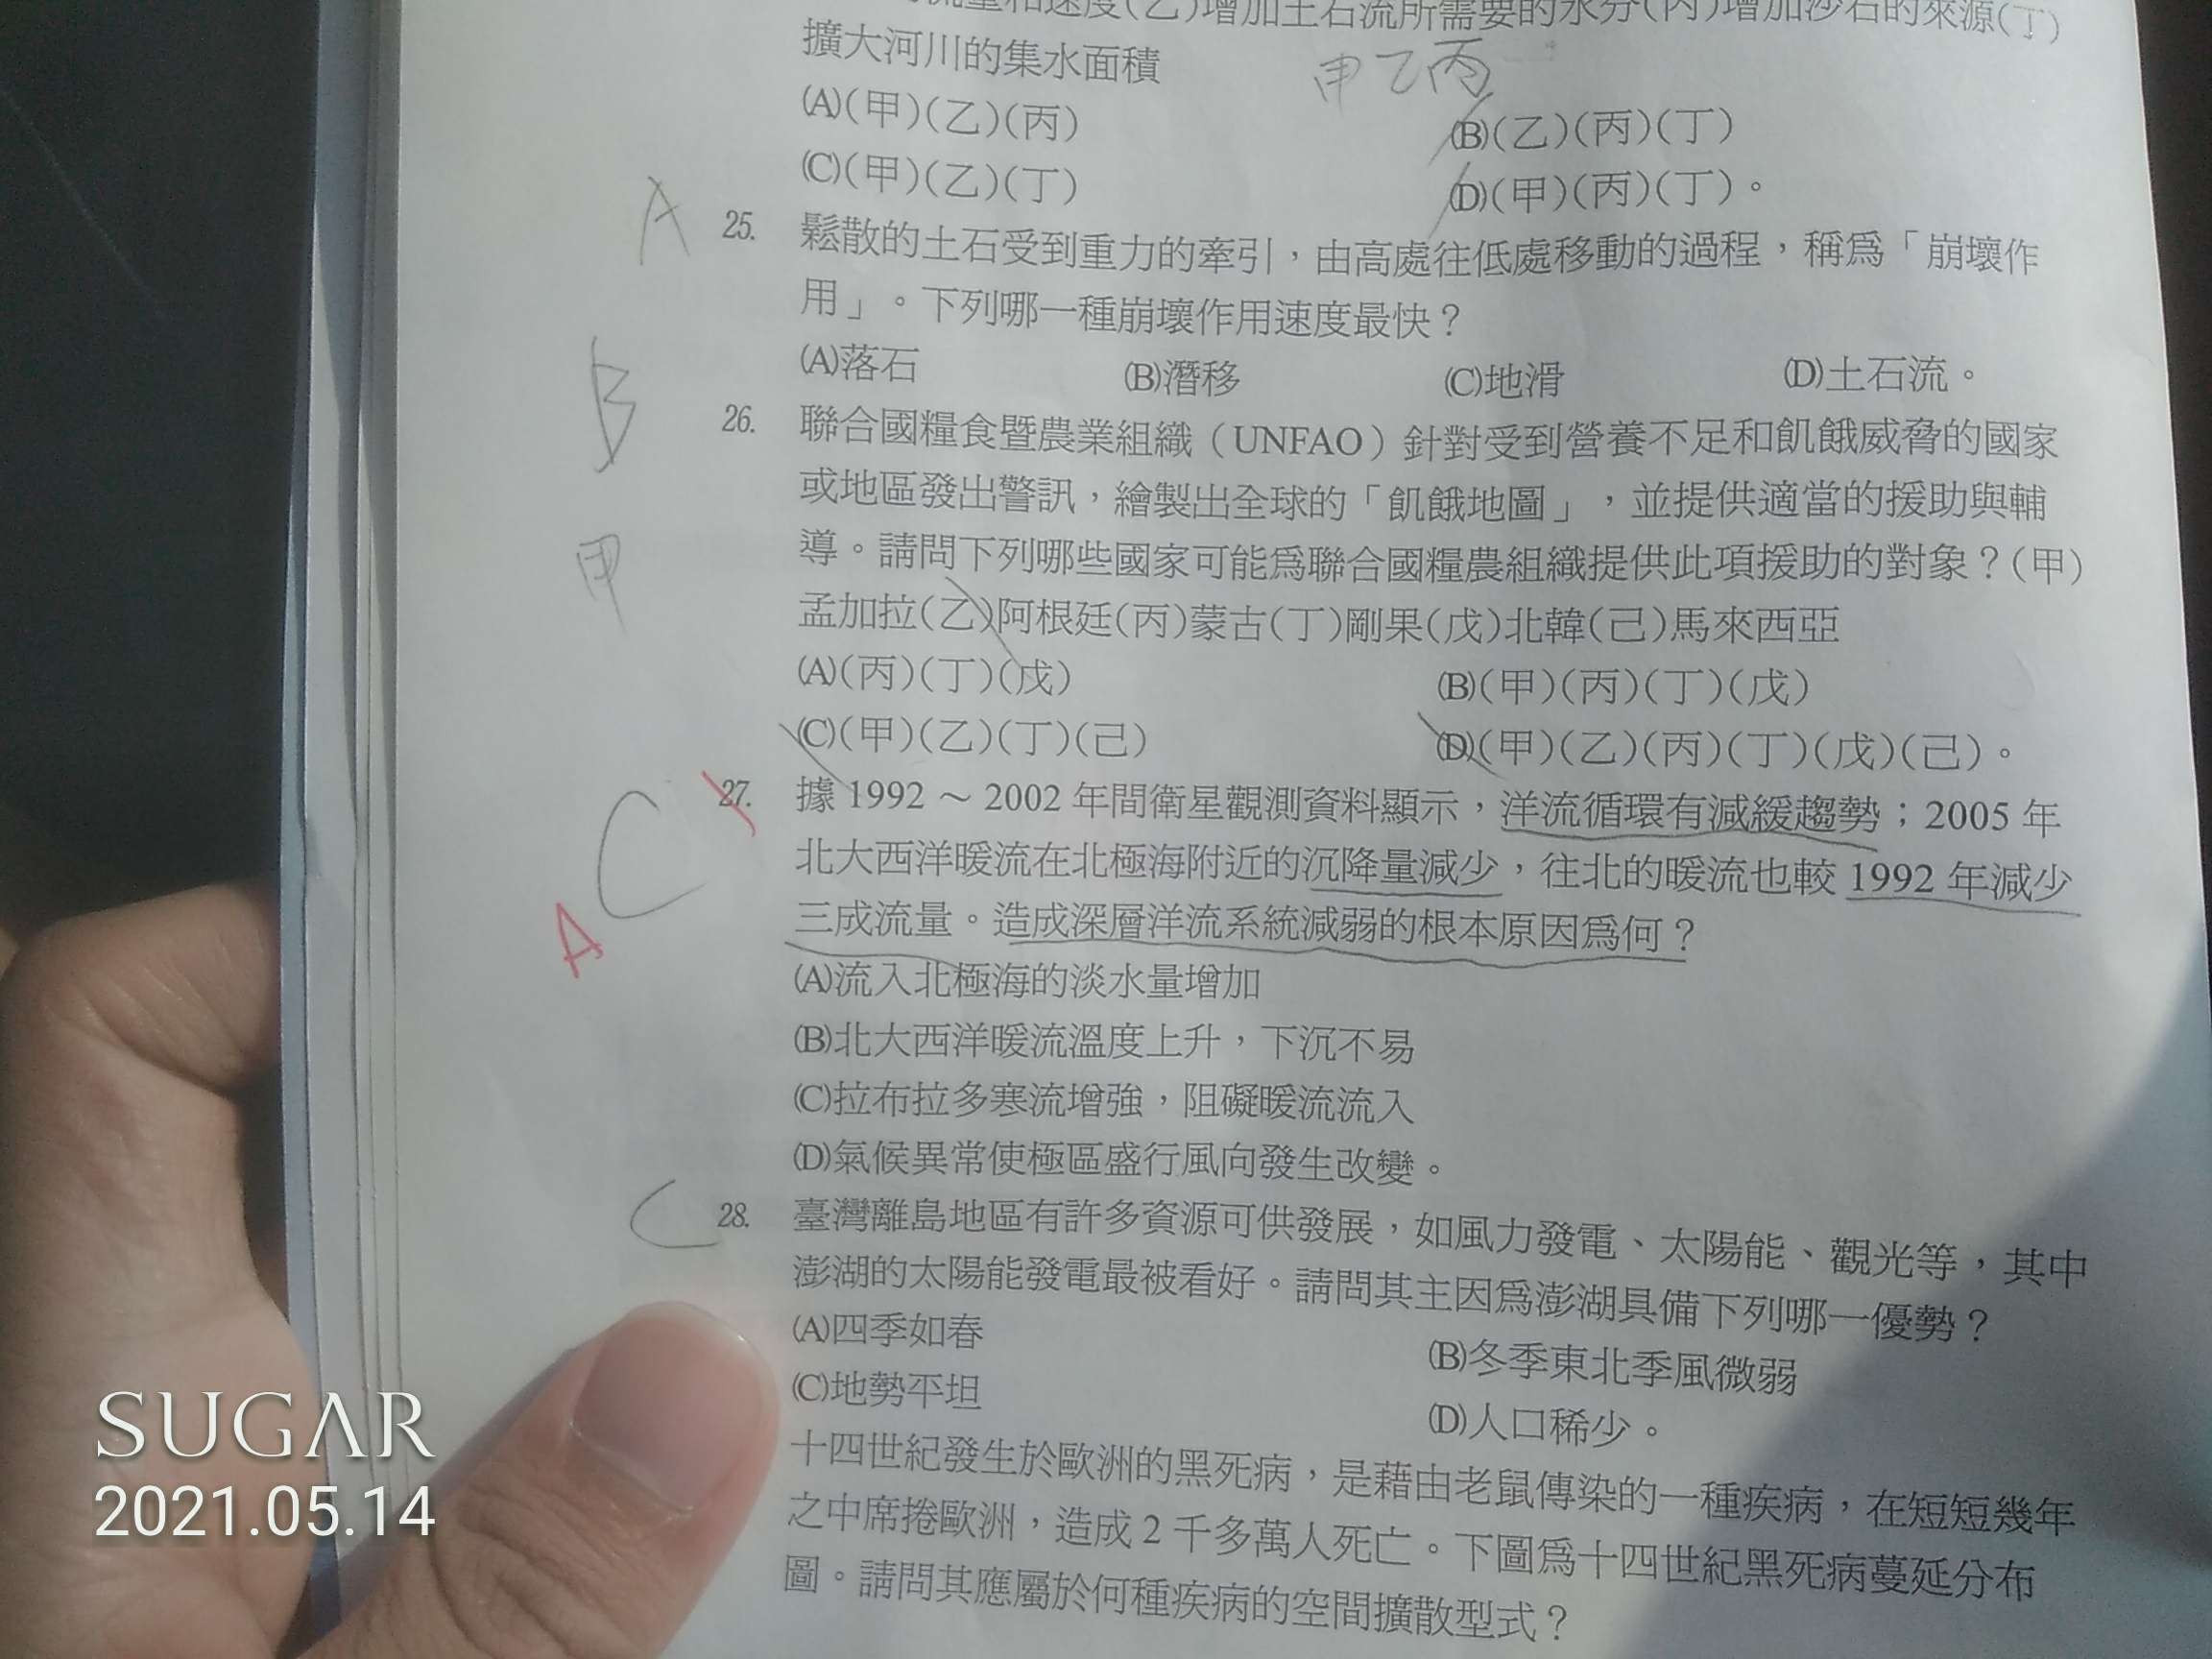 流量和速度(乙)增加土石流所需要的水分(丙)增加沙石的來源(丁)
擴大河川的集水面積
甲乙丙
(A)(甲)(乙)(丙) (B)(乙)(丙)(丁)
(C)(甲)(乙)(丁) (D)(甲)(丙)(丁)。
A 25. 鬆散的土石受到重力的牽引，由高處往低處移動的過程，稱爲「崩壞作
用」。下列哪一種崩壞作用速度最快？
(A)落石 (B)潛移 (C)地滑 (D)土石流。
B 26. 聯合國糧食暨農業組織（UNFAO）針對受到營養不足和飢餓威脅的國家
或地區發出警訊，繪製出全球的「飢餓地圖」，並提供適當的援助與輔
甲 導。請問下列哪些國家可能爲聯合國糧農組織提供此項援助的對象？(甲)
孟加拉(乙)阿根廷(丙)蒙古(丁)剛果(戊)北韓(己)馬來西亞
(A)(丙)(丁)(戊) (B)(甲)(丙)(丁)(戊)
(C)(甲)(乙)(丁)(己) (D)(甲)(乙)(丙)(丁)(戊)(己)。
C 27. 據 1992 ～ 2002 年間衛星觀測資料顯示，洋流循環有減緩趨勢；2005 年
北大西洋暖流在北極海附近的沉降量減少，往北的暖流也較 1992 年減少
A 三成流量。造成深層洋流系統減弱的根本原因爲何？
(A)流入北極海的淡水量增加
(B)北大西洋暖流溫度上升，下沉不易
(C)拉布拉多寒流增強，阻礙暖流流入
(D)氣候異常使極區盛行風向發生改變。
C 28. 臺灣離島地區有許多資源可供發展，如風力發電、太陽能、觀光等，其中
澎湖的太陽能發電最被看好。請問其主因爲澎湖具備下列哪一優勢？
(A)四季如春 (B)冬季東北季風微弱
(C)地勢平坦 (D)人口稀少。
十四世紀發生於歐洲的黑死病，是藉由老鼠傳染的一種疾病，在短短幾年
之中席捲歐洲，造成 2 千多萬人死亡。下圖爲十四世紀黑死病蔓延分布
圖。請問其應屬於何種疾病的空間擴散型式？
SUGAR
2021.05.14